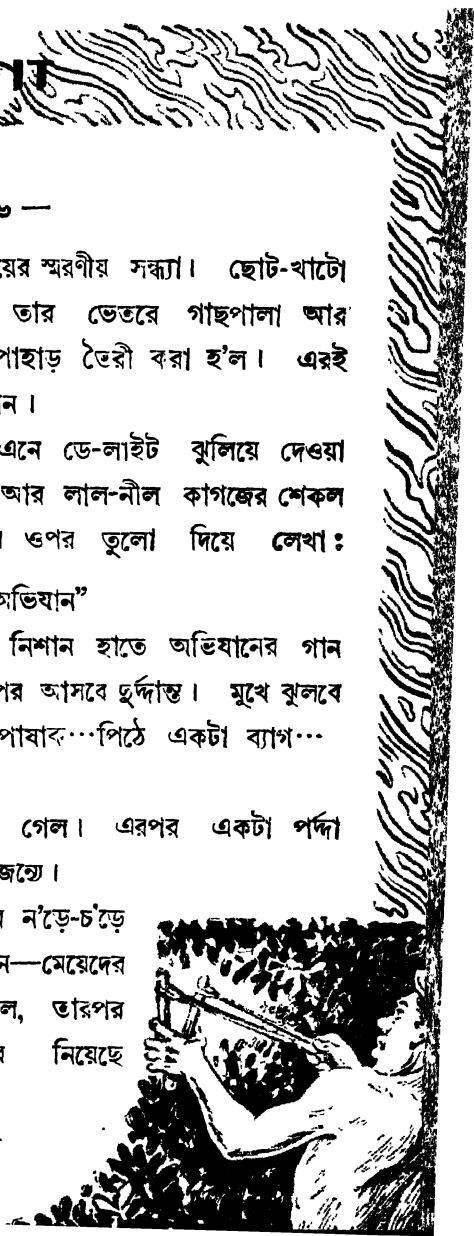 —
য়ের স্মরণীয় সন্ধ্যা। ছোট-খাটো
তার ভেতরে গাছপালা আর
পাহাড় তৈরী করা হ'ল। এরই
ন।
এনে ডে-লাইট ঝুলিয়ে দেওয়া
আর লাল-নীল কাগজের শেকল
ওপর তুলো দিয়ে লেখা :
অভিযান”
নিশান হাতে অভিযানের গান
পর আসবে দুর্দ্দান্ত। মুখে ঝুলবে
পোষাক···পিঠে একটা ব্যাগ···
গেল। এরপর একটা পর্দ্দা
জন্যে।
ন'ড়ে-চ'ড়ে
ন—মেয়েদের
ল, তারপর
নিয়েছে